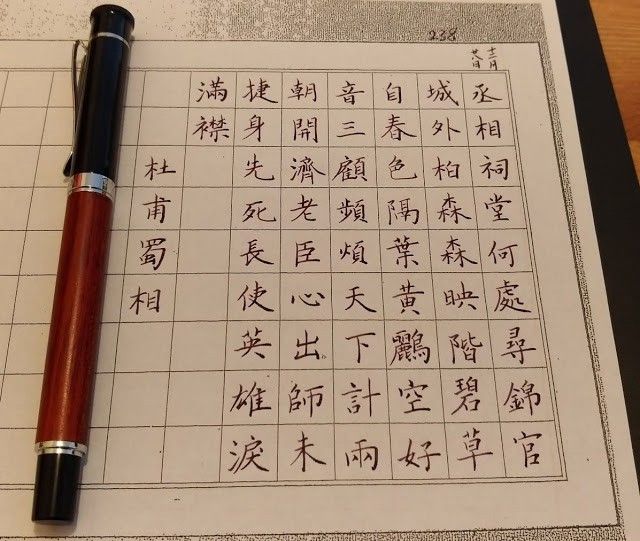 238
丞相祠堂何處尋錦官
城外柏森森映階碧草
自春色隔葉黃鸝空好
音三顧頻煩天下計兩
朝開濟老臣心出師未
捷身先死長使英雄淚
滿襟
杜甫蜀相